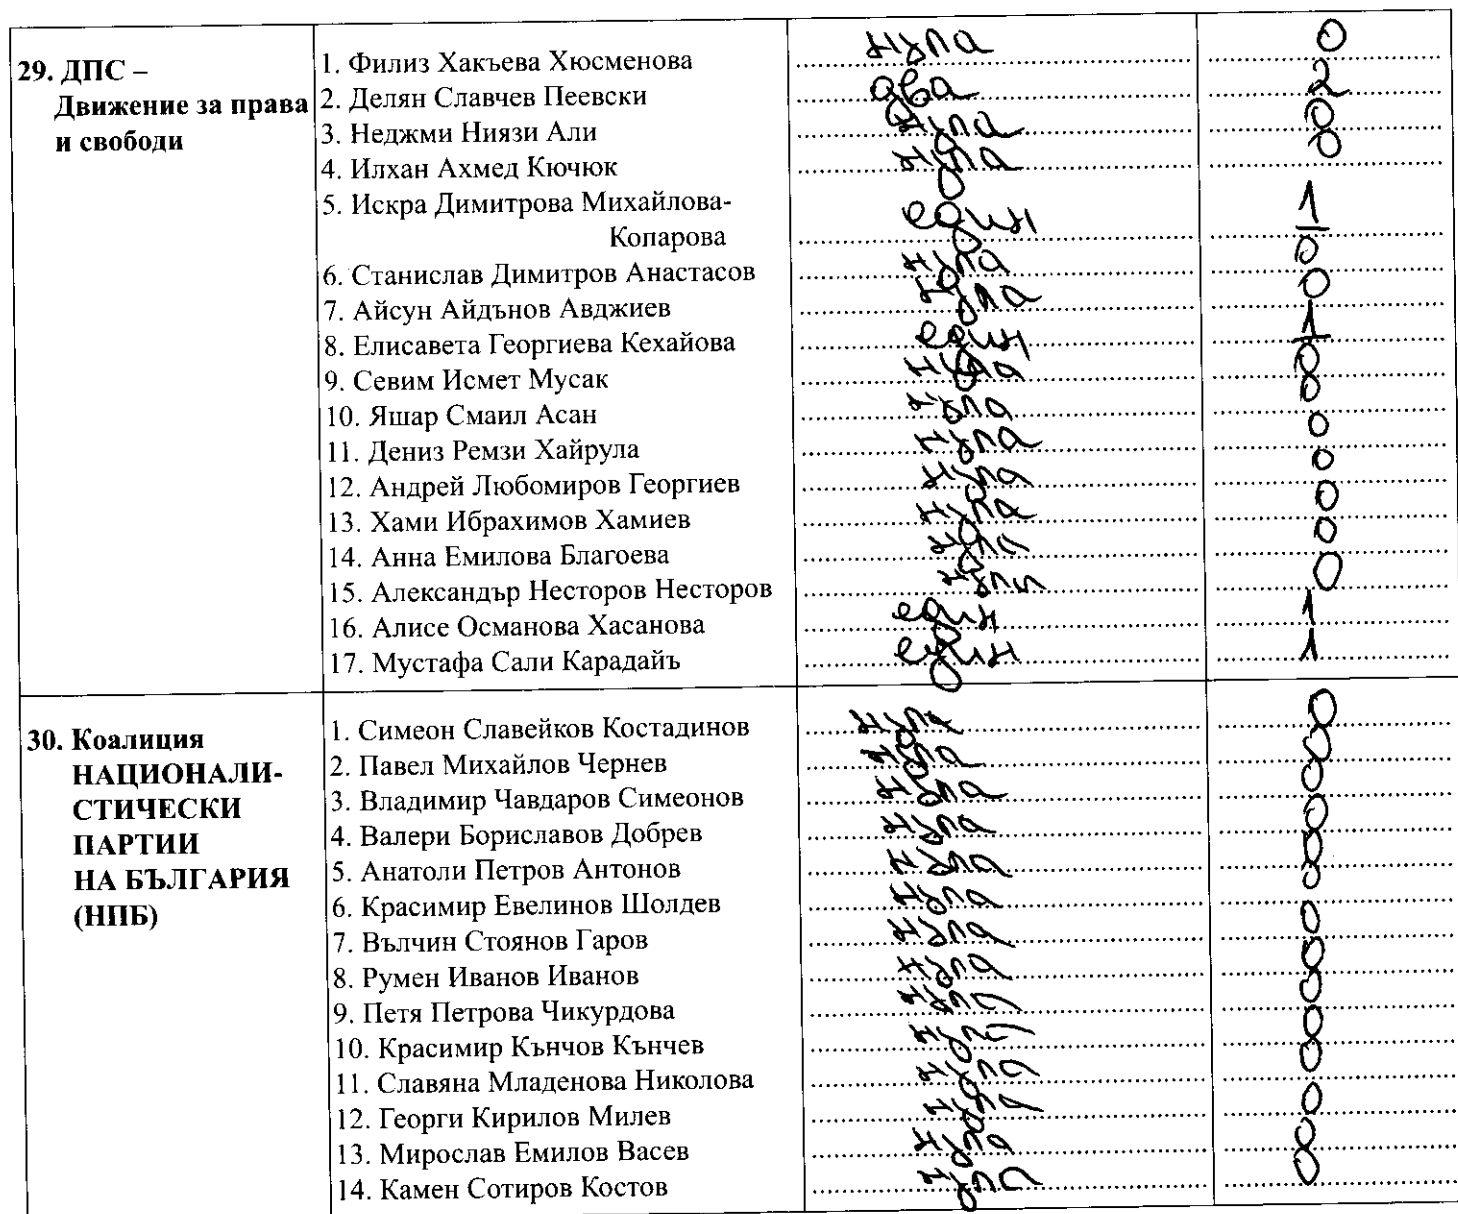 29. ДПС –
Движение за права
и свободи
1. Филиз Хакъева Хюсменова нула 0
2. Делян Славчев Пеевски два 2
3. Неджми Ниязи Али нула 0
4. Илхан Ахмед Кючюк нула 0
5. Искра Димитрова Михайлова-
Копарова един 1
6. Станислав Димитров Анастасов нула 0
7. Айсун Айдънов Авджиев нула 0
8. Елисавета Георгиева Кехайова един 1
9. Севим Исмет Мусак нула 0
10. Яшар Смаил Асан нула 0
11. Дениз Ремзи Хайрула нула 0
12. Андрей Любомиров Георгиев нула 0
13. Хами Ибрахимов Хамиев нула 0
14. Анна Емилова Благоева нула 0
15. Александър Несторов Несторов нула 0
16. Алисе Османова Хасанова един 1
17. Мустафа Сали Карадайъ един 1
30. Коалиция
НАЦИОНАЛИ-
СТИЧЕСКИ
ПАРТИИ
НА БЪЛГАРИЯ
(НПБ)
1. Симеон Славейков Костадинов нула 0
2. Павел Михайлов Чернев нула 0
3. Владимир Чавдаров Симеонов нула 0
4. Валери Бориславов Добрев нула 0
5. Анатоли Петров Антонов нула 0
6. Красимир Евелинов Шолдев нула 0
7. Вълчин Стоянов Гаров нула 0
8. Румен Иванов Иванов нула 0
9. Петя Петрова Чикурдова нула 0
10. Красимир Кънчов Кънчев нула 0
11. Славяна Младенова Николова нула 0
12. Георги Кирилов Милев нула 0
13. Мирослав Емилов Васев нула 0
14. Камен Сотиров Костов нула 0